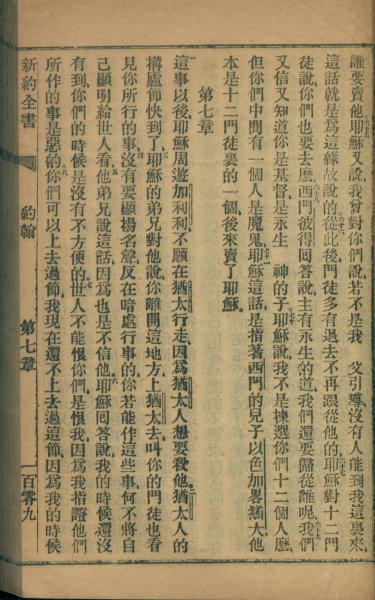 誰要賣他耶穌又說我曾對你們說若不是我 父引導沒有人能到我這裏來
這話就是爲這緣故說的從此後門徒多有退去不再跟從他的耶穌對十二門
徒說你們也要去麽西門彼得回答說主有永生的道我們還要歸從誰呢我們
又信又知道你是基督是永生 神的子耶穌說我不是揀選你們十二個人麽
但你們中間有一個人是魔鬼耶穌這話是指著西門的兒子以色加畧猶大他
本是十二門徒裏的一個後來賣了耶穌
第七章
這事以後耶穌周遊加利利不願在猶太行走因爲猶太人想要殺他猶太人的
搆廬節快到了耶穌的弟兄對他說你離開這地方上猶太去叫你的門徒也看
見你所行的事沒有要顯揚名聲反在暗處行事的你若能作這些事何不將自
己顯明給世人看他弟兄說這話因爲也是不信他耶穌回答說我的時候還沒
有到你們的時候是沒有不方便的世人不能恨你們是恨我因爲我指證他們
所作的事是惡的你們可以上去過節我現在還不上去過這節因爲我的時候
新約全書
約翰
第七章
一百零九